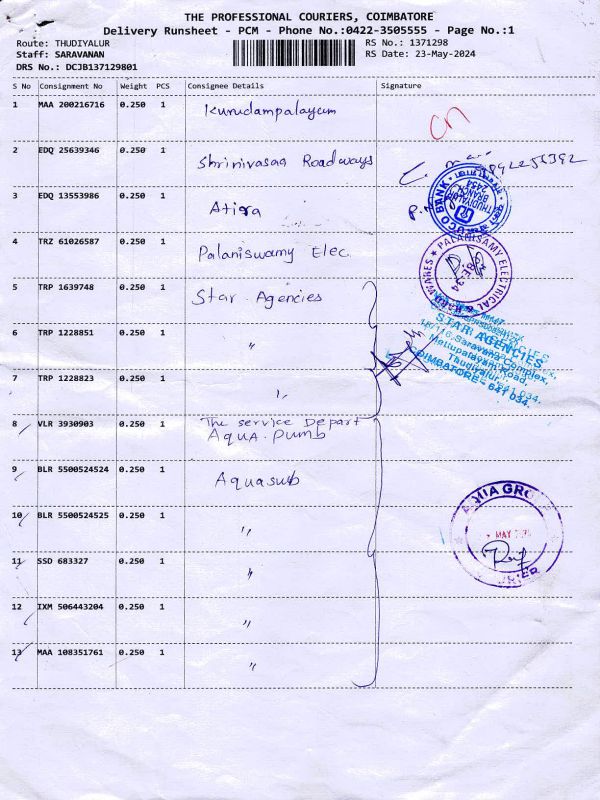 THE PROFESSIONAL COURIERS, COIMBATORE
Delivery Runsheet - PCM - Phone No.:0422-3505555 - Page No.:1
Route: THUDIYALUR
RS No.: 1371298
Staff: SARAVANAN
RS Date: 23-May-2024
DRS No.: DCJB137129801
S No Consignment No Weight PCS Consignee Details Signature
1 MAA 200216716 0.250 1 Kurudampalayam CN
2 EDQ 25639346 0.250 1 Shrinivasaa Roadways
3 EDQ 13553986 0.250 1 Atira
UCO BANK
THUDIYALUR
BRANCH
2454
4 TRZ 61026587 0.250 1 Palaniswamy Elec.
PALANISAMY ELECTRICAL &
CBE-34
5 TRP 1639748 0.250 1 Star Agencies
6 TRP 1228851 0.250 1 "
STAR AGENCIES
18/116, Saravana Complex,
Mettupalayam Road,
Thudiyalur,
COIMBATORE - 641 034.
7 TRP 1228823 0.250 1 "
8 VLR 3930903 0.250 1 The service Depart
Aqua. Pumb
9 BLR 5500524524 0.250 1 Aquasub
10 BLR 5500524525 0.250 1 "
AQUA GROUP
MAY
11 SSD 683327 0.250 1 "
12 IXM 506443204 0.250 1 "
13 MAA 108351761 0.250 1 "